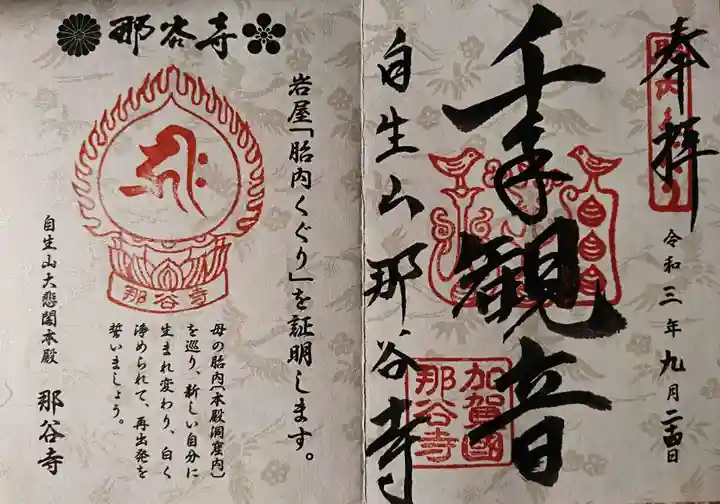 奉拝
令和三年九月二十四日
千手観音
自生山那谷寺
加賀國
那谷寺
那谷寺
岩屋「胎内くぐり」を証明します。
母の胎内〔本殿洞窟内〕
を巡り、新しい自分に
生まれ変わり、白く
浄められて、再出発を
誓いましょう。
那谷寺
自生山大悲閣本殿
那谷寺